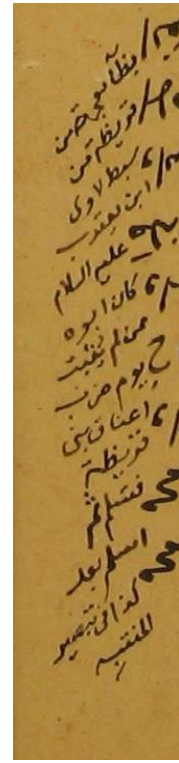 يظآ بمعجمة من
قريظة من
سبط لاوى
ابن يعقوب
عليه السلام
كان ابوه
ممن لم ينبت
يوم ضرب
اعناق بنى
قريظة
فسلم ثم
اسلم بعد
كذا فى تبصير
المنتبه